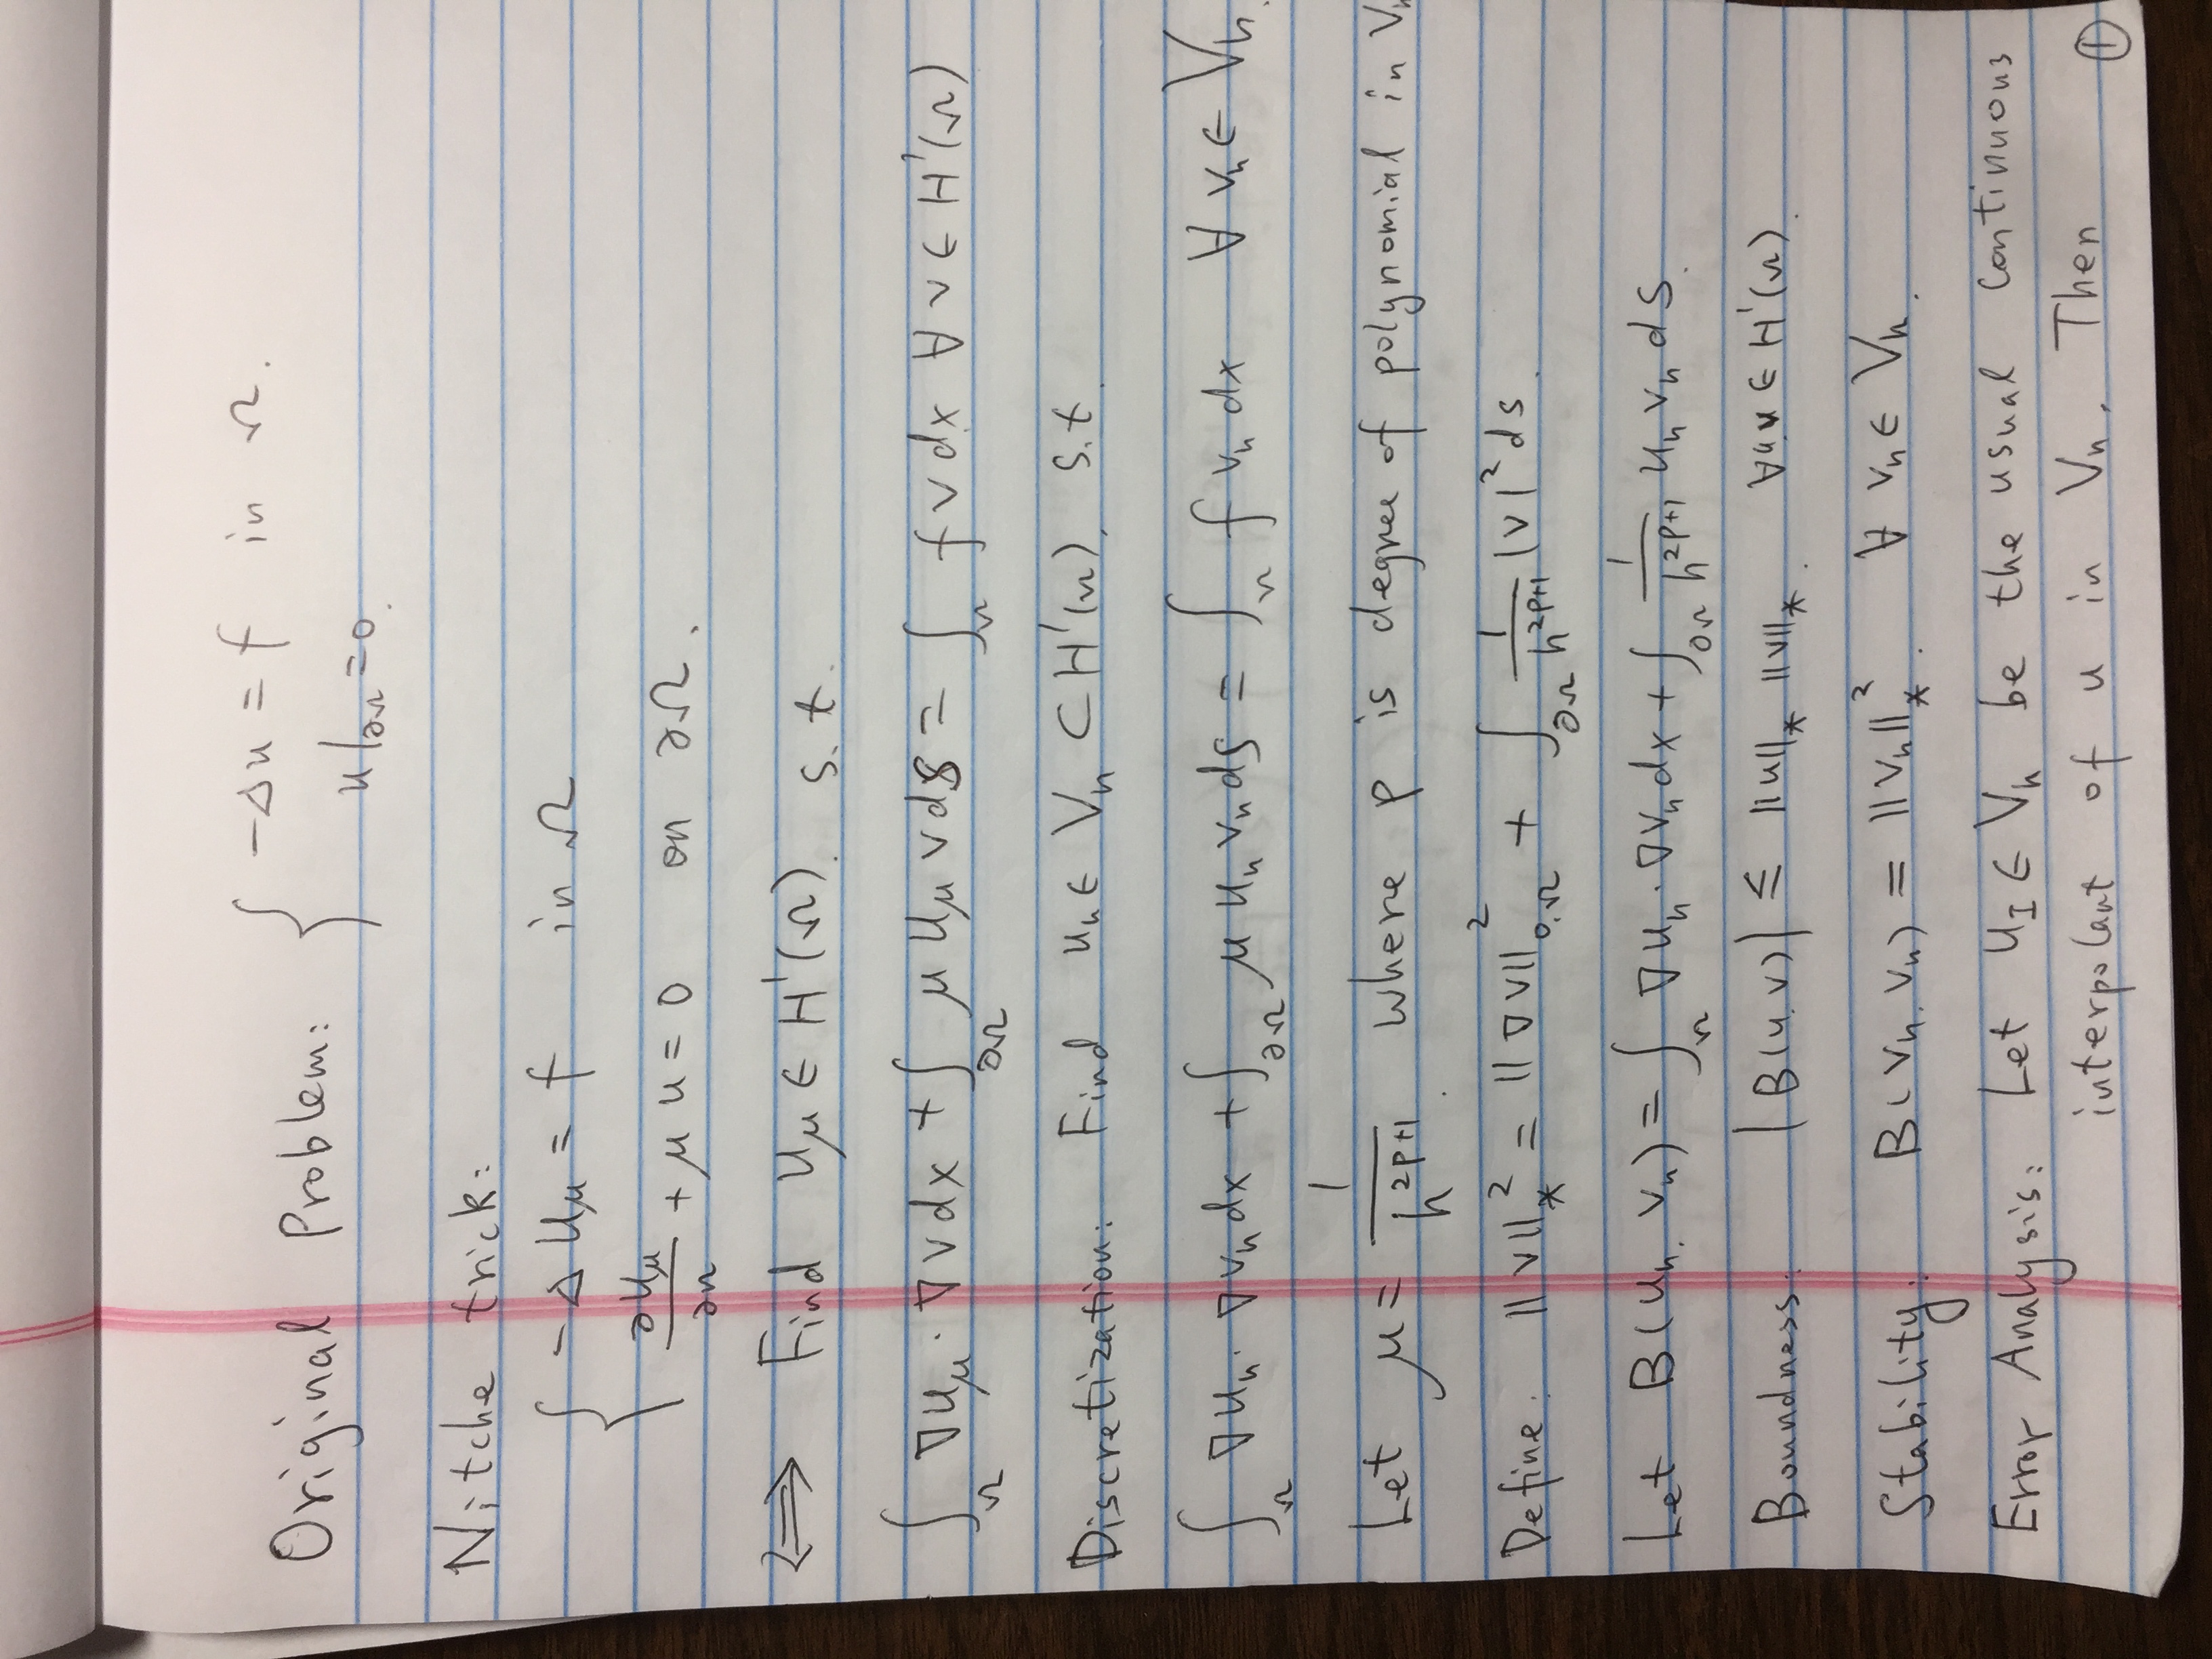 Original Problem: { -Δu = f in Ω.
u|∂Ω = 0.
Nitche trick:
{ -Δ uμ = f in Ω
∂uμ/∂n + μ u = 0 on ∂Ω.
⟺ Find uμ ∈ H¹(Ω). s.t.
∫Ω ∇uμ · ∇v dx + ∫∂Ω μ uμ v ds = ∫Ω f v dx ∀ v ∈ H¹(Ω)
Discretization: Find uh ∈ Vh ⊂ H¹(Ω). s.t.
∫Ω ∇uh · ∇vh dx + ∫∂Ω μ uh vh ds = ∫Ω f vh dx ∀ vh ∈ Vh.
Let μ = 1/h^{2p+1}. where p is degree of polynomial in Vh
Define: ||v||*² = ||∇v||²0,Ω + ∫∂Ω 1/h^{2p+1} |v|² ds.
Let B(uh, vh) = ∫Ω ∇uh · ∇vh dx + ∫∂Ω 1/h^{2p+1} uh vh ds.
Boundness: |B(u,v)| ≤ ||u||* ||v||*. ∀u,v ∈ H¹(Ω).
Stability: B(vh, vh) = ||vh||*². ∀ vh ∈ Vh.
Error Analysis: Let uI ∈ Vh be the usual continuous
interpolant of u in Vh. Then ①